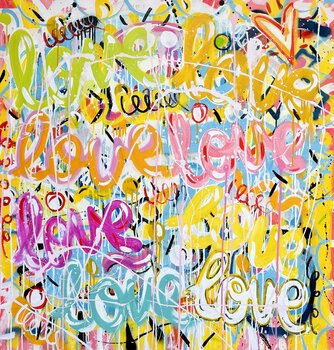 love love
love love
love love
love love